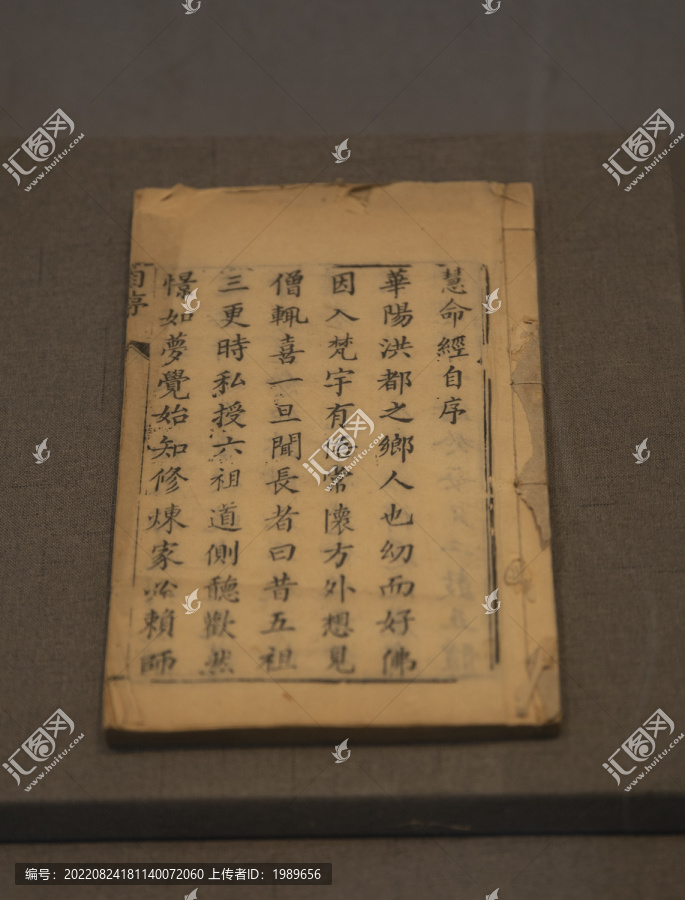 慧命經自序
華陽洪都之鄉人也幼而好佛
因入梵宇有悟常懷方外想見
僧輒喜一旦聞長者曰昔五祖
三更時私授六祖道側聽歡然
憬如夢覺始知修煉家必賴師
自序
汇图网
www.huitu.com
编号：20220824181140072060 上传者ID：1989656